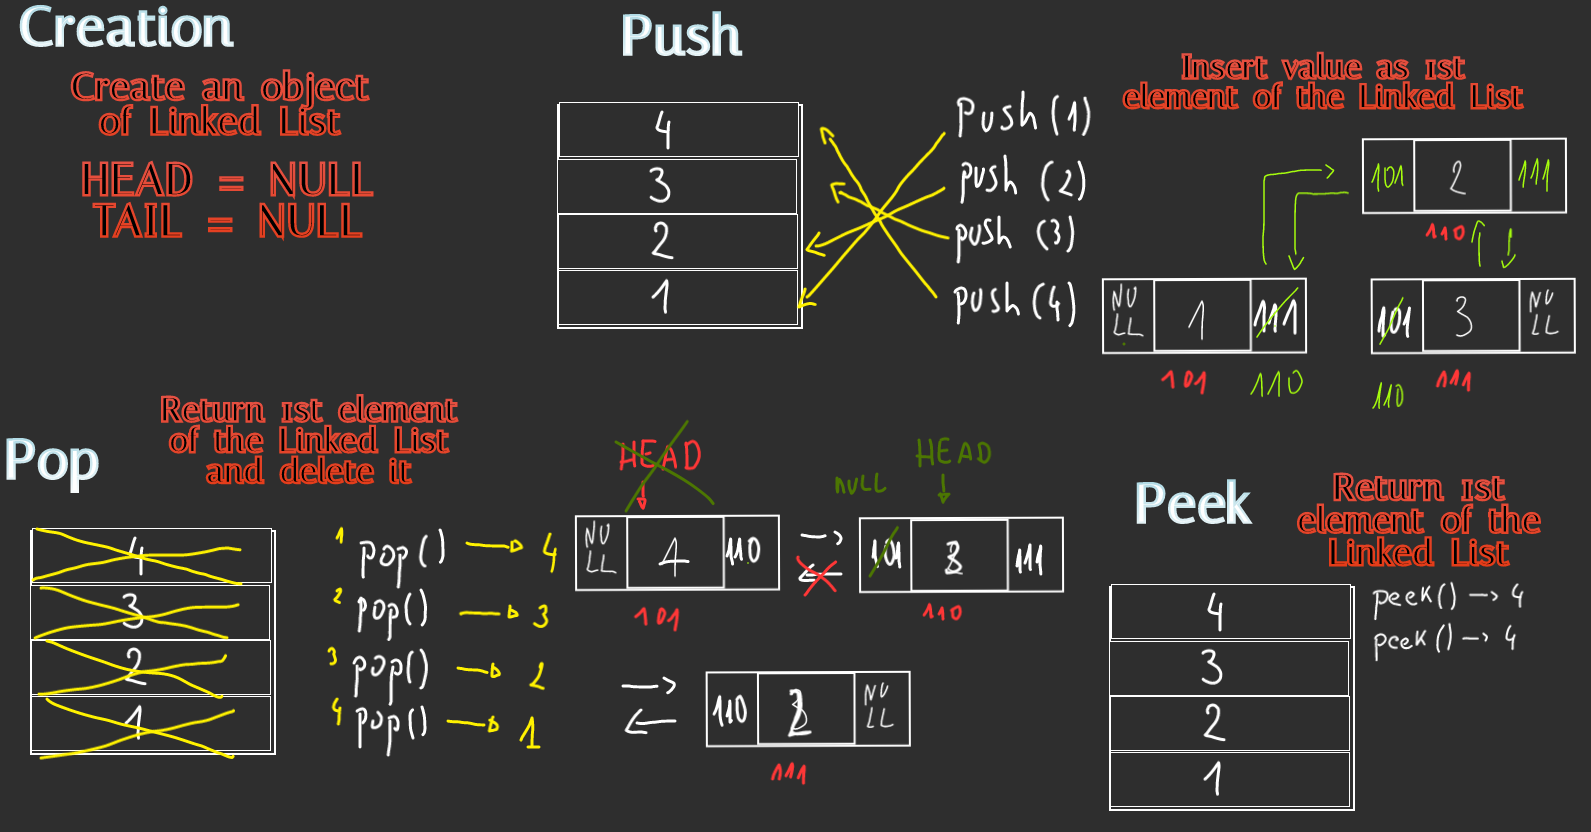 Creation
Create an object
of Linked List
HEAD = NULL
TAIL = NULL
Push
4
3
2
1
Push(1)
push (2)
push (3)
push(4)
Insert value as 1st
element of the Linked List
101 2 111
110
NU
LL 1 111
101 110
101 3 NU
LL
110 111
Pop
Return 1st element
of the Linked List
and delete it
4
3
2
1
1 pop() → 4
2 pop() → 3
3 pop() → 2
4 pop() → 1
HEAD
NU
LL 4 110
101
NULL
HEAD
101 3 111
110
110 2 NU
LL
111
Peek
Return 1st
element of the
Linked List
4
3
2
1
peek() → 4
peek() → 4